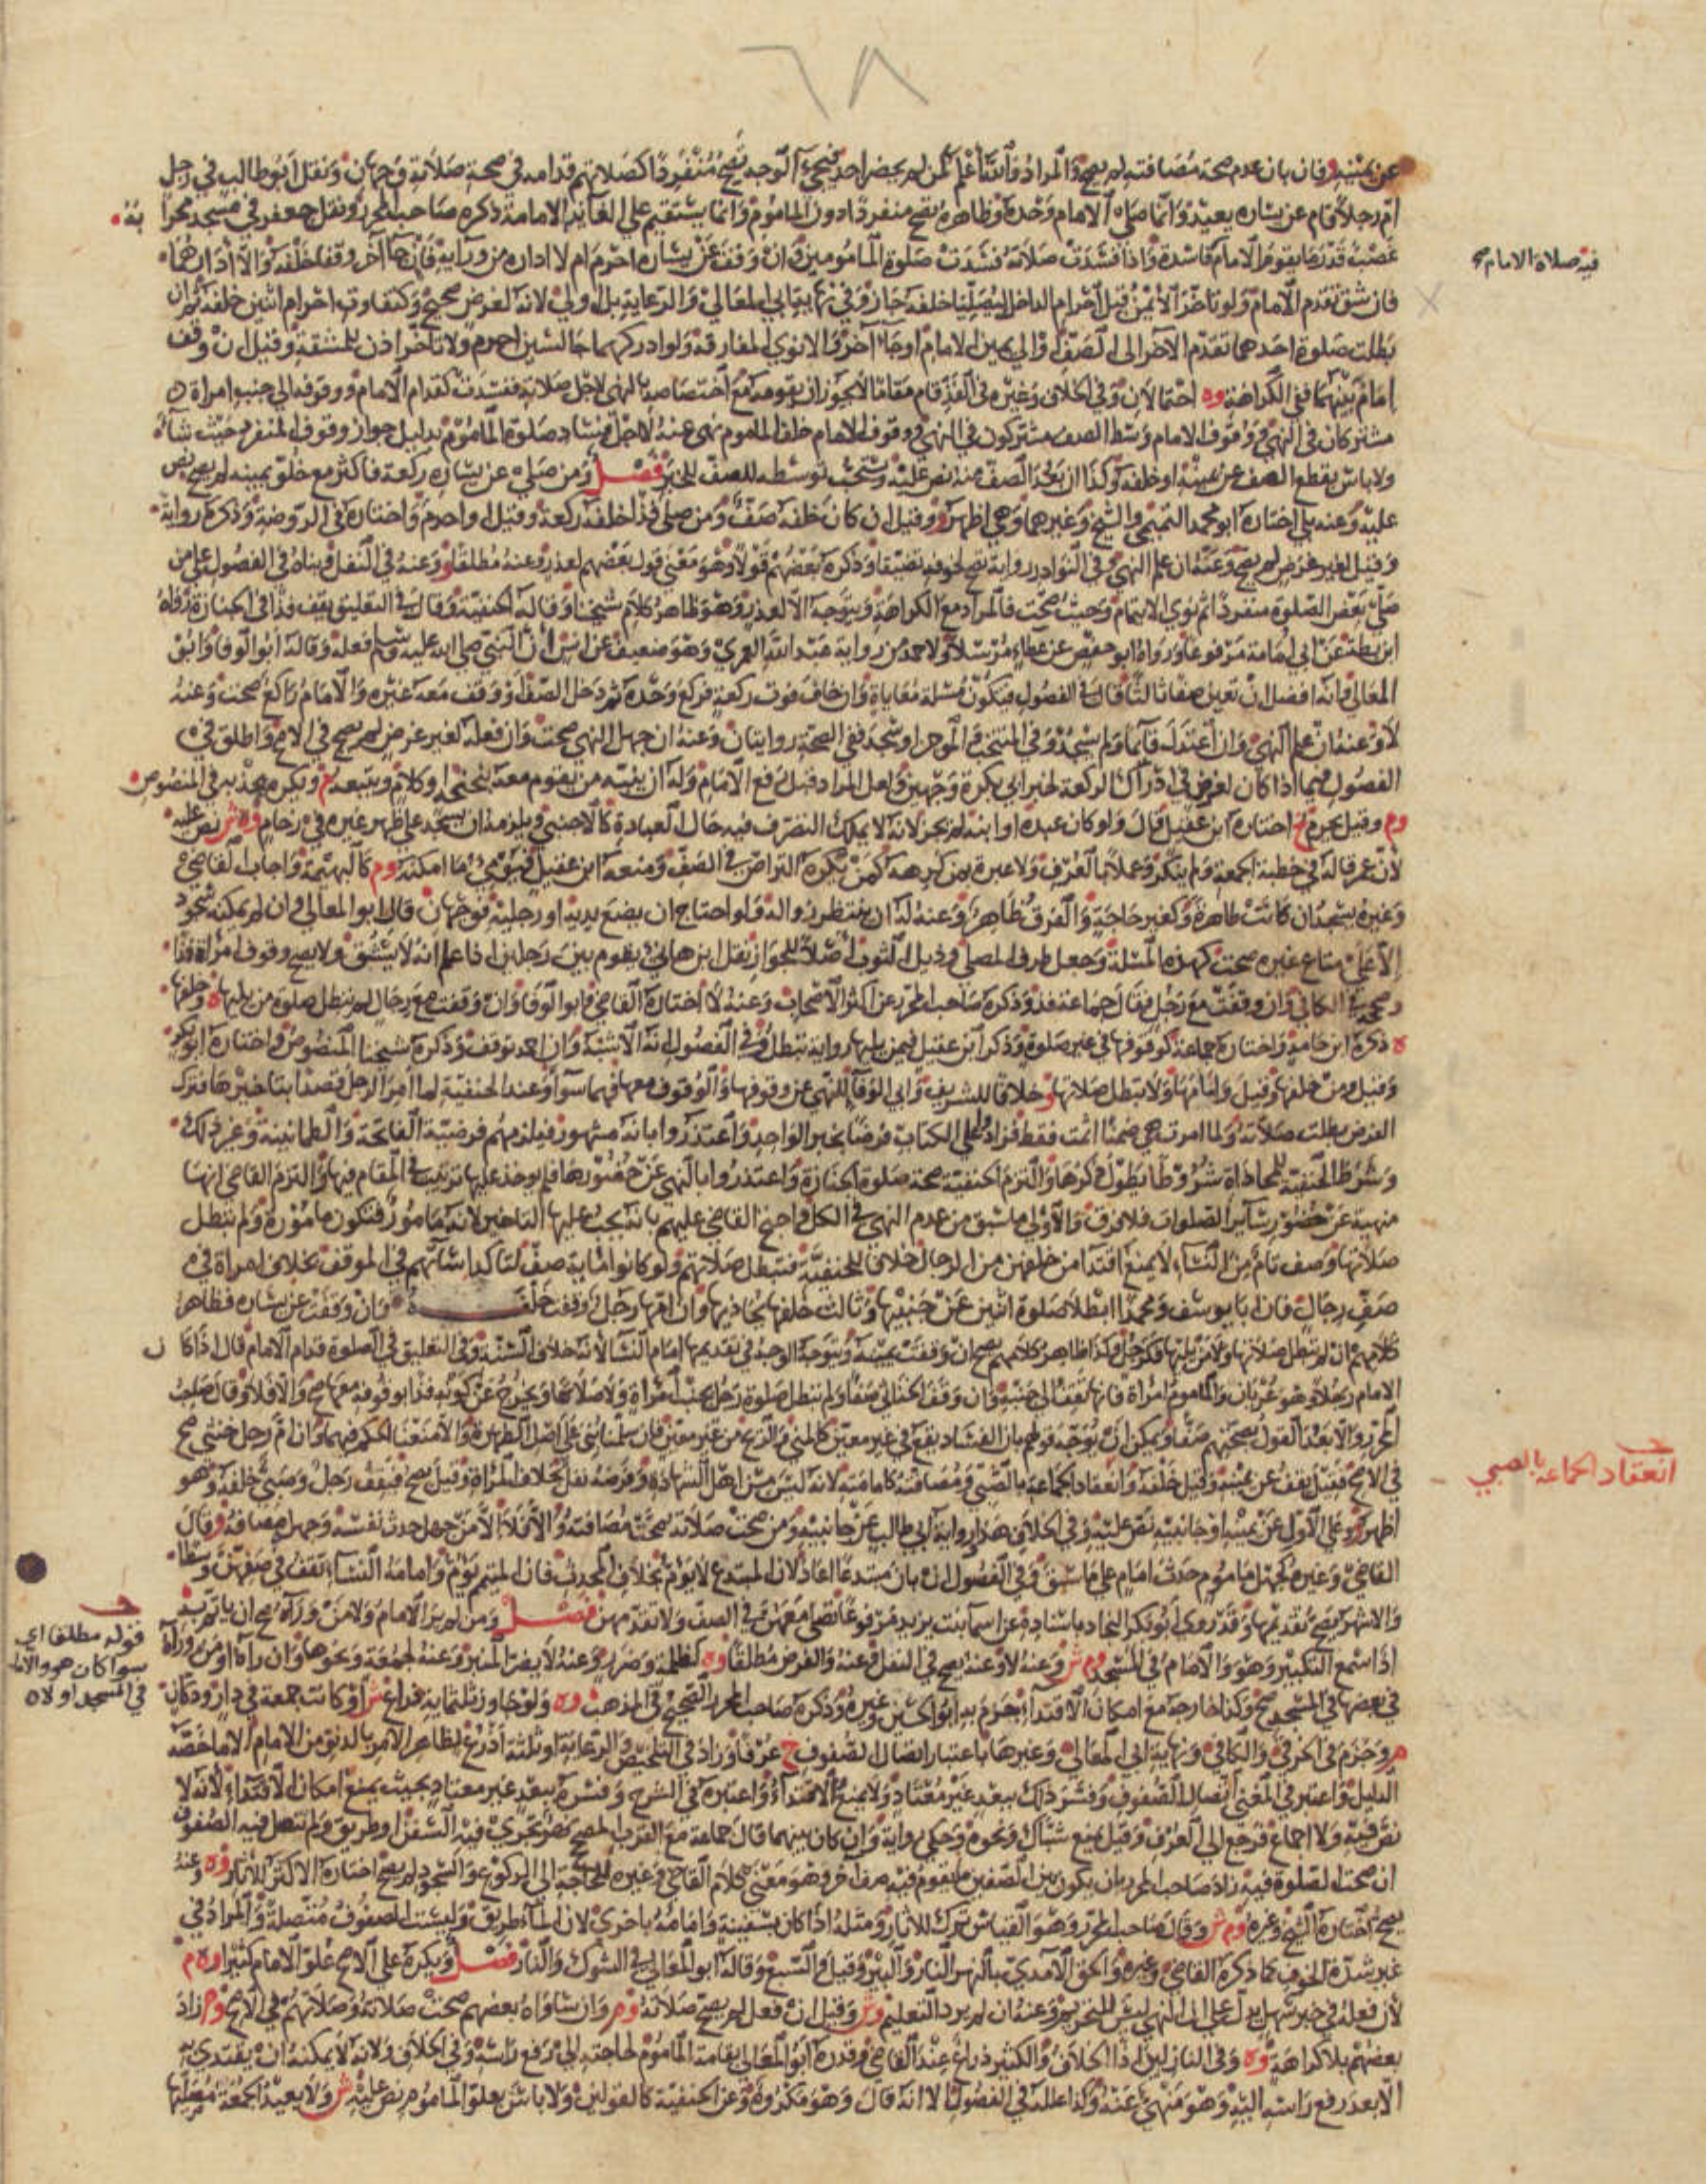 ٦٨
عن يمينه فان بان عدم صحة مصافته لم يصح والمراد والله أعلم لمن لم يحضر احد فيجيء الوجه تصح منفردا كصلاتهم قدامه في صحة صلاته وجهان ونقل ابو طالب في رجل
ام رجلا قام عن يساره يعيد وانما صلاه الامام وحده وظاهره تصح منفردا دون الماموم وانما يستقيم على الغاء نية الامامة ذكره صاحب المحرر ونقل جعفر في مسجد محرابه
غصب قدر ما يقوم الامام فاسدة واذا فسدت صلاته فسدت صلوة المامومين وان وقف عن يساره احرم ام لا اداره من ورائه فان جاء آخر وقفا خلفه والا ادارهما
فيه صلاة الامام
فان شق تقدم الامام ولو تاخر الايمن قبل احرام الداخل ليصليا خلفه جاز وفي نهاية ابي المعالي والرعاية بل اولى لانه لغرض صحيح وكتفاوت احرام اثنين خلفه ثم ان
بطلت صلوة احدهما تقدم الآخر الى الصف او الى يمين الامام او جاء آخر والا نوى المفارقة ولو ادركهما جالسين احرم ولا تاخر اذن للمشقة وقيل ان وقف
امام بينهما ففي الكراهة وه احتمالان وفي الخلاف وغيره في الفذ قام مقاما لا يجوز ان يقومه مع اختصاصه بالنهي لاجل صلاته ففسدت كقدام الامام ووقوفه الى جنب امراة
مشتركان في النهي ووقوف الامام وسط الصف مشتركون في النهي ووقوف الامام خلف الماموم نهي عنه لاجل فساد صلوة الماموم بدليل جواز وقوف المنفرد حيث شاء
ولا باس بقطع الصف عن يمينه او خلفه وكذا ان بعد الصف منه نص عليه ويستحب توسطه للصف للخبر فصل ومن صلى عن يساره ركعة فاكثر مع خلو يمينه لم يصح نص
عليه وعنه بلى اختاره ابو محمد التميمي والشيخ وغيرهما وهي اظهر وو وقيل ان كان خلفه صف ومن صلى فذا خلفه ركعة وقيل او احرم واختاره في الروضة وذكره رواية
وقيل لغير غرض لم يصح وعنه ان علم النهي وفي النوادر رواية تصح لخوفه تضيقا وذكره بعضهم قولا وهو معنى قول بعضهم لعذر وعنه مطلقا و وعنه في النفل وبناه في الفصول على من
صلى بعض الصلوة منفردا ثم نوى الايتمام وحيث صحت فالمراد مع الكراهة ويتوجه الا لعذر وهو ظاهر كلام شيخنا وقاله الحنفية وقال في التعليق يقف فذا في الجنازة رواه
ابن بطة عن ابي امامة مرفوعا ورواه ابو حفص عن عطاء مرسلا ولاحمد من رواية عبد الله العمري وهو ضعيف عن انس ان النبي صلى الله عليه وسلم فعله وقاله ابو الوفا وابو
المعالي فانه افضل ان تعين صفا ثالثا قال في الفصول فيكون مسئلة معاياة وان خاف فوت ركعة فركع وحده ثم دخل الصف او وقف معه غيره والامام راكع صحت وعنه
لا وعنه ان علم النهي وان اعتدل قائما ولم يسجد وفي المنتخب والموجز او سجد ففي الصحة روايتان وعنه ان جهل النهي صحت وان فعله لغير غرض لم يصح في الاصح واطلق في
الفصول فيما اذا كان لغرض في ادراك الركعة لخبر ابي بكرة وجهين ولعل المراد قبل رفع الامام وله ان ينبه من يقوم معه بنحنحة او كلام ويتبعه ع ويكره بجذبه في المنصوص
وم وقيل يحرم خ اختاره ابن عقيل قال ولو كان عبده او ابنه لم يجز لانه لا يملك التصرف فيه حال العبادة كالاجنبي ويلزمه ان يسجد على ظهر غيره في زحام وه ش نص عليه
لان عمر قاله في خطبة الجمعة ولم ينكر وعملا بالعرف ولا عبرة بمن كرهه كمن يكره التراص في الصف ومنعه ابن عقيل فيومئ ما امكنه وم كالبهيمة واجاب القاضي
وغيره يسجد ان كانت طاهرة وكغير حاجة والفرق ظاهر وعنه له ان ينتظر زواله ولو احتاج ان يضع يديه او رجليه فوجهان قال ابو المعالي وان لم يمكنه سجود
الا على متاع غيره صحت كهذه المسئلة وجعل طرف المصلى وذيل الثوب اصلا للجواز نقل ابن هانئ يقوم بين رجلين اذا علم انه لا يشق ولا يصح وقوف امراة فذا
وصححه في الكافي وان وقفت مع رجل فقال جماعة فذ وذكره صاحب المحرر عن اكثر الاصحاب وعنه لا اختاره القاضي وابو الوفا وان وقفت مع رجال لم تبطل صلوة من يليها وخلفها
ه ذكره ابن حامد واختاره جماعة كوقوفها في غير صلوة وذكر ابن عقيل فيمن يليها رواية تبطل وفي الفصول انه الاشبه وان احمد توقف وذكره شيخنا المنصوص واختاره ابو بكر
وقيل ومن خلفها وقيل وامامها ولا تبطل صلاتها و خلافا للشريف وابي الوفا للنهي عن وقوفها والوقوف معها فهما سواء وعند الحنفية لما امر الرجل قصدا بتاخيرها فترك
الفرض بطلت صلاته ولما امرت هي ضمنا اثمت فقط فزادوا على الكتاب فرضا بخبر الواحد واعتذروا بانه مشهور فيلزمهم فرضية الفاتحة والطمانينة وغير ذلك
وشرط الحنفية للمحاذاة شروطا يطول ذكرها والتزم الحنفية صحة صلوة الجنازة واعتذروا بالنهي عن حضورها فلم يوخذ عليها ترتيب في المقام فيها والتزم القاضي انها
منهية عن حضور سائر الصلوات فلا فرق والاولى ما سبق من عدم النهي في الكل واحتج القاضي عليهم بانه يجب عليها التاخير لانه مامور فتكون مامورة ولم تبطل
صلاتها وصف تام من النساء لا يمنع اقتدا من خلفهن من الرجال خلافا للحنفية فتبطل صلاتهم ولو كانوا مئة صف لتاكد اساءتهم في الموقف بخلاف امراة في
صف رجال فان ابا يوسف ومحمدا ابطلا صلوة اثنين عن جنبيها وثالث خلفها يحاذيها وان امها رجل وقف خلفـــه وان وقفت عن يساره فظاهر
كلامهم ان لم تبطل صلاتها ولا من يليها فكرجل وكذا ظاهر كلامهم يصح ان وقفت يمينه ويتوجه الوجه في تقديمها امام النساء لانه خلاف السنة وفي التعليق في الصلوة قدام الامام قال اذا كان
الامام رجلا وهو عريان والماموم امراة فانها تقف الى جنبه وان وقف الخناثى صفا ولم تبطل صلوة رجل بجنب امراة ولا صلاتها ويخرج عن كونه فذا بوقوفه معها صح والا فلا وقال صاحب
المحرر والا بعد القول بصحتهم صفا ويمكن ان يوجه قولهم بان الفساد يقع في غير معين كالمني والريح من غير معين فان سلمنا بنى على اصل الطهارة والا منعنا الحكم فيهما وان ام رجل خنثى صح
في الاصح فقيل يقف عن يمينه وقيل خلفه وانعقاد الجماعة بالصبي ومصافته كامامته لانه ليس من اهل الشهادة وفرضه نفل بخلاف المراة وقيل يصح فيقف رجل وصبي خلفه وهو
انعقاد الجماعة بالصبي
اظهر وو على الاول عن يمينه او جانبيه نص عليه وفي الخلاف هذا رواية ابي طالب عن جانبيه ومن صحت صلاته صحت مصافته والا فلا الا من جهل حدث نفسه وجهله مصافه وقال
القاضي وغيره كجهل ماموم حدث امام على ما سبق وفي الفصول ان بان مبتدعا اعاد لان المبتدع لا يؤم بخلاف المحدث فان المتيمم يؤم وامامة النساء تقف في صفهن وسطا
والاشهر يصح تقديمها وقد روى ابو بكر النجاد باسناده عن اسما بنت يزيد مرفوعا تصلي معهن في الصف ولا تقدمهن فصل ومن لم ير الامام ولا من وراءه صح ان ياتم به
اذا سمع التكبير وهو والامام في المسجد وم ش وعنه لا وعنه يصح في النفل وعنه والفرض مطلقا وه لظلمة وضرر وعنه لا يضر المنبر وعنه لجمعة ونحوها وان رآه او من وراءه
قوله مطلقا اي
سوا كان هو والامام
في المسجد او لا ه
في بعضها في المسجد صح وكذا خارجه مع امكان الاقتداء جزم به ابو الحسين وغيره وذكره صاحب المحرر الصحيح في المذهب وه ولو جاوز ثلثماية ذراع ش او كانت جمعة في دار ودكان
م وجزم في الخرقي والكافي ونهاية ابي المعالي وغيرها باعتبار اتصال الصفوف خ عرفا وزاد في التلخيص والرعاية او ثلثة اذرع لظاهر الامر بالدنو من الامام الا ما خصه
الدليل واعتبر في المغني اتصال الصفوف وفسر ذلك ببعد غير معتاد ولا يمنع الاقتداء واعتبره في الشرح وفسره ببعد غير معتاد بحيث يمنع امكان الاقتداء لانه لا
نص فيه ولا اجماع فرجع الى العرف وقيل يمنع شباك ونحوه وحكي رواية وان كان بينهما قال جماعة مع القرب المصحح نهر تجري فيه السفن او طريق ولم تتصل فيه الصفوف
ان صحت الصلوة فيه زاد صاحب المحرر بان يكون بين الصفين ما يقوم فيه صف آخر وهو معنى كلام القاضي وغيره للحاجة الى الركوع والسجود لم يصح اختاره الاكثر للاثار وه وعنه
يصح اختاره الشيخ وغيره وم ش وقال صاحب المحرر وهو القياس ترك للاثار ومثله اذا كان بسفينة وامامه باخرى لان الماء طريق وليست الصفوف متصلة والمراد في
غير شدة الخوف كما ذكره القاضي وغيره والحق الآمدي بالنهر النار والبئر وقيل والسبع وقاله ابو المعالي في الشوك والنار فصل ويكره على الاصح علو الامام كثيرا وه م
لان فعله في خبر سهل يدل على ان النهي ليس للتحريم وعنه ان لم يرد التعليم وش وقيل ان فعل لم يصح صلاته وم وان ساواه بعضهم صحت صلاته وصلاتهم في الاصح وم زاد
بعضهم بلا كراهة وه وفي النازلين اذا الخلاف والكثير ذراع عند القاضي وقدره ابو المعالي بقامة الماموم لحاجته الى رفع راسه وفي الخلاف ولانه لا يمكنه ان يقتدي به
الا بعد رفع راسه اليه وهو منهي عنه وكذا علله في الفصول الا انه قال وهو مكروه وعن الحنفية كالقولين ولا باس بعلو الماموم نص عليه ش ولا يعيد الجمعة مصليها